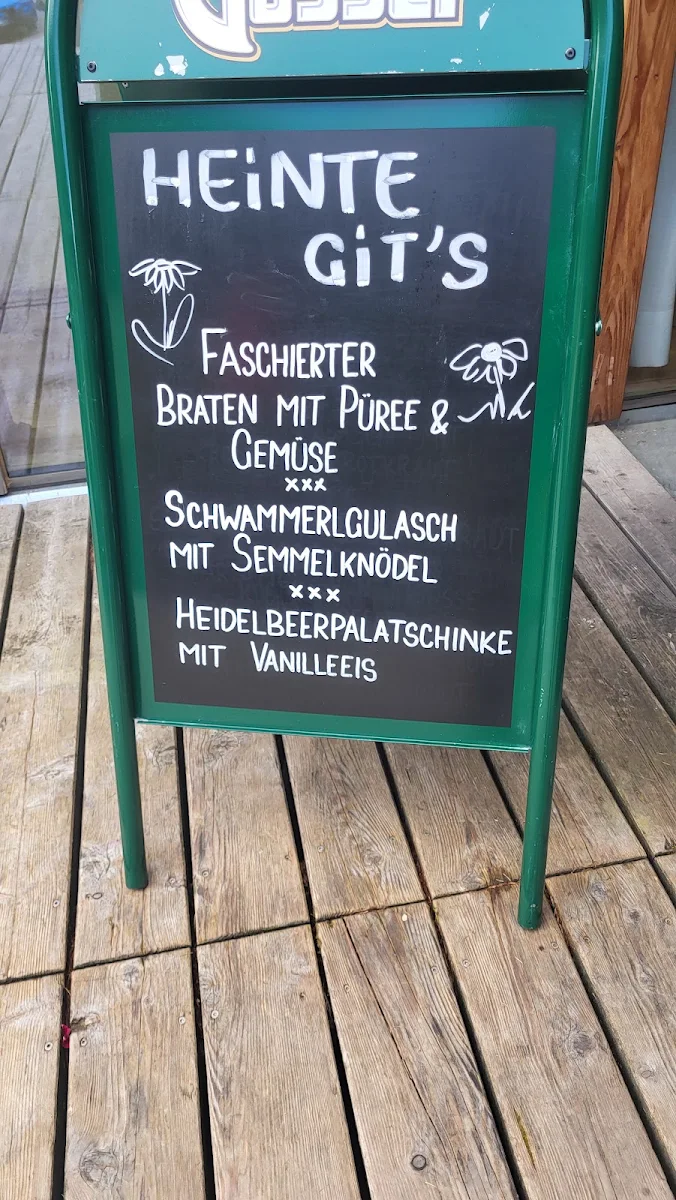 Gösser
HEiNTE
GiT'S
FASCHIERTER
BRATEN MIT PÜREE &
GEMÜSE
xxx
SCHWAMMERLGULASCH
MIT SEMMELKNÖDEL
xxx
HEIDELBEERPALATSCHINKE
MIT VANILLEEIS